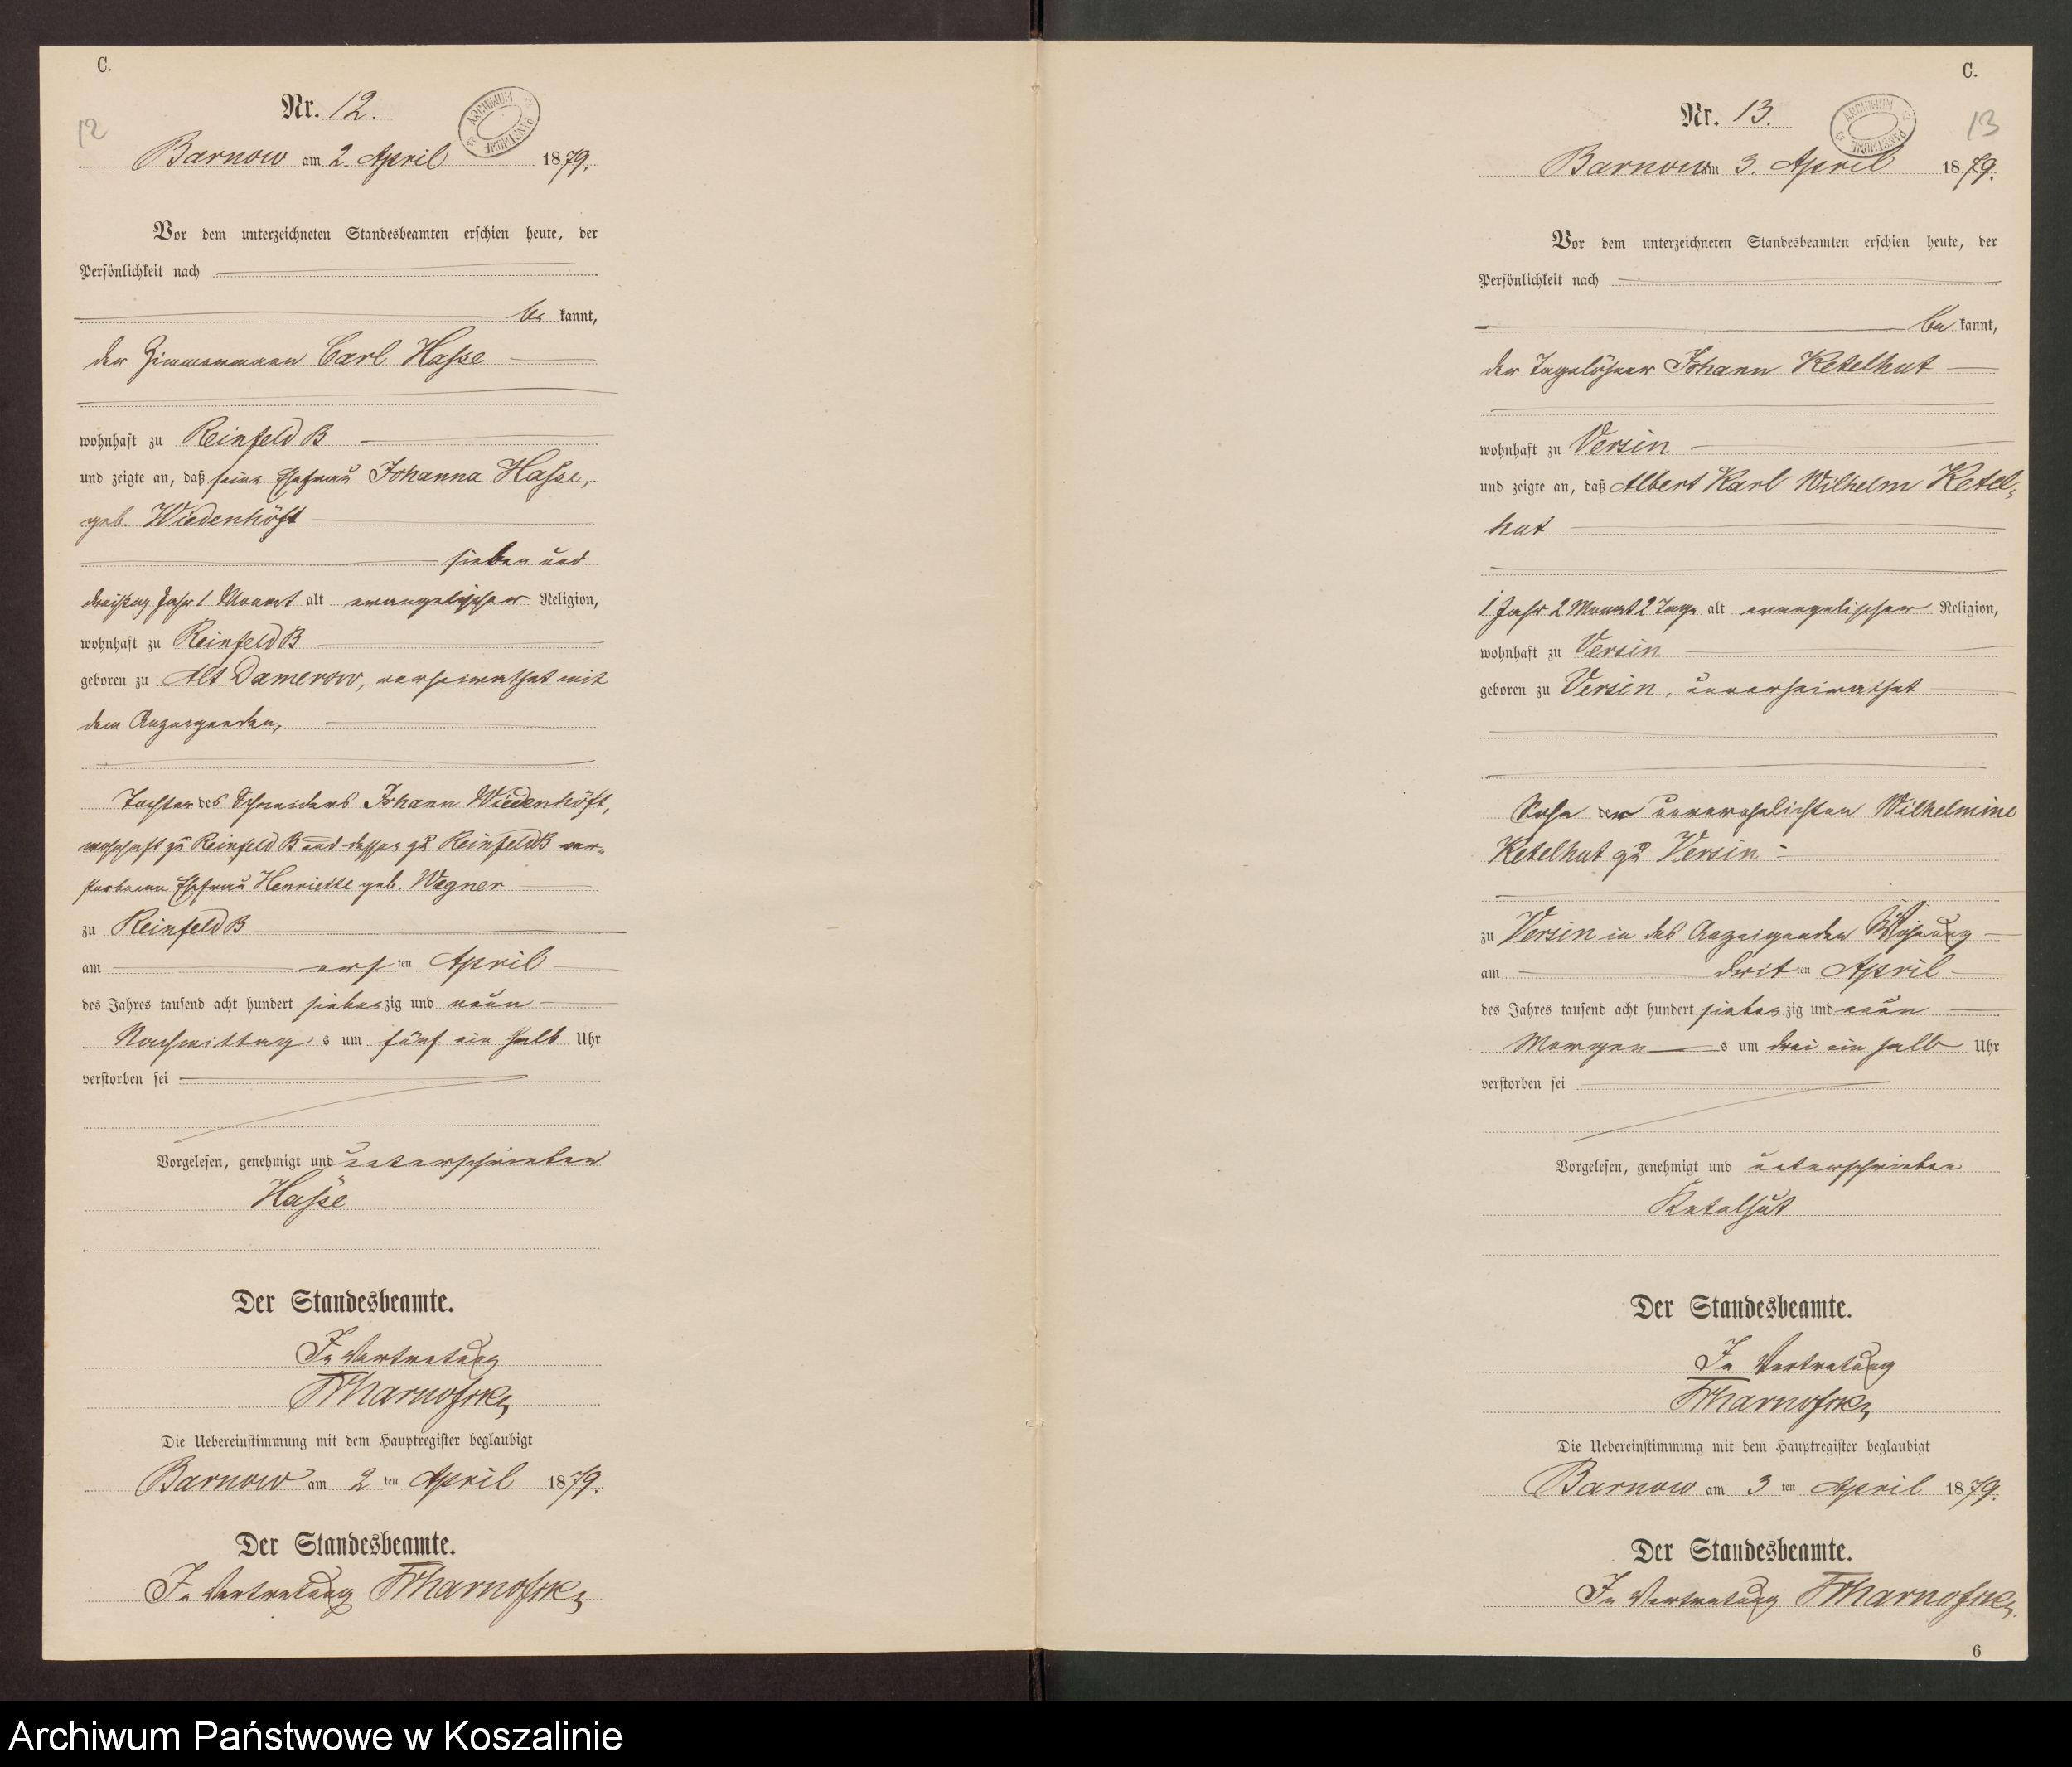 C.
Nr. 12.
12
ARCHIWUM PAŃSTWOWE
Barnow am 2. April 1879.
Vor dem unterzeichneten Standesbeamten erschien heute, der
Persönlichkeit nach
be kannt,
der Zimmermann Carl Hasse
wohnhaft zu Reinfeld B
und zeigte an, daß seine Ehefrau Johanna Hasse,
geb. Wiedenhöft
sieben und
dreißig Jahr 1 Monat alt evangelischer Religion,
wohnhaft zu Reinfeld B
geboren zu Alt Damerow, verheirathet mit
dem Anzeigenden,
Tochter des Schneiders Johann Wiedenhöft,
wohnhaft zu Reinfeld B und dessen zu Reinfeld B ver-
storbenen Ehefrau Henriette geb. Wegner
zu Reinfeld B
am ersten April
des Jahres tausend acht hundert siebenzig und neun
Nachmittags um fünf ein halb Uhr
verstorben sei
Vorgelesen, genehmigt und unterschrieben
Hasse
Der Standesbeamte.
In Vertretung
Die Uebereinstimmung mit dem Hauptregister beglaubigt
Barnow am 2 ten April 1879.
Der Standesbeamte.
In Vertretung
C.
Nr. 13.
13
ARCHIWUM PAŃSTWOWE
Barnow am 3. April 1879.
Vor dem unterzeichneten Standesbeamten erschien heute, der
Persönlichkeit nach
be kannt,
der Tagelöhner Johann Ketelhut
wohnhaft zu Versin
und zeigte an, daß Albert Karl Wilhelm Ketel-
hut
1 Jahr 2 Monat 2 Tage alt evangelischer Religion,
wohnhaft zu Versin
geboren zu Versin, unverheirathet
Sohn der unverehelichten Wilhelmine
Ketelhut zu Versin
zu Versin in des Anzeigenden Wohnung
am dritten April
des Jahres tausend acht hundert siebenzig und neun
Morgens um drei ein halb Uhr
verstorben sei
Vorgelesen, genehmigt und unterschrieben
Ketelhut
Der Standesbeamte.
In Vertretung
Die Uebereinstimmung mit dem Hauptregister beglaubigt
Barnow am 3 ten April 1879.
Der Standesbeamte.
In Vertretung
6
Archiwum Państwowe w Koszalinie